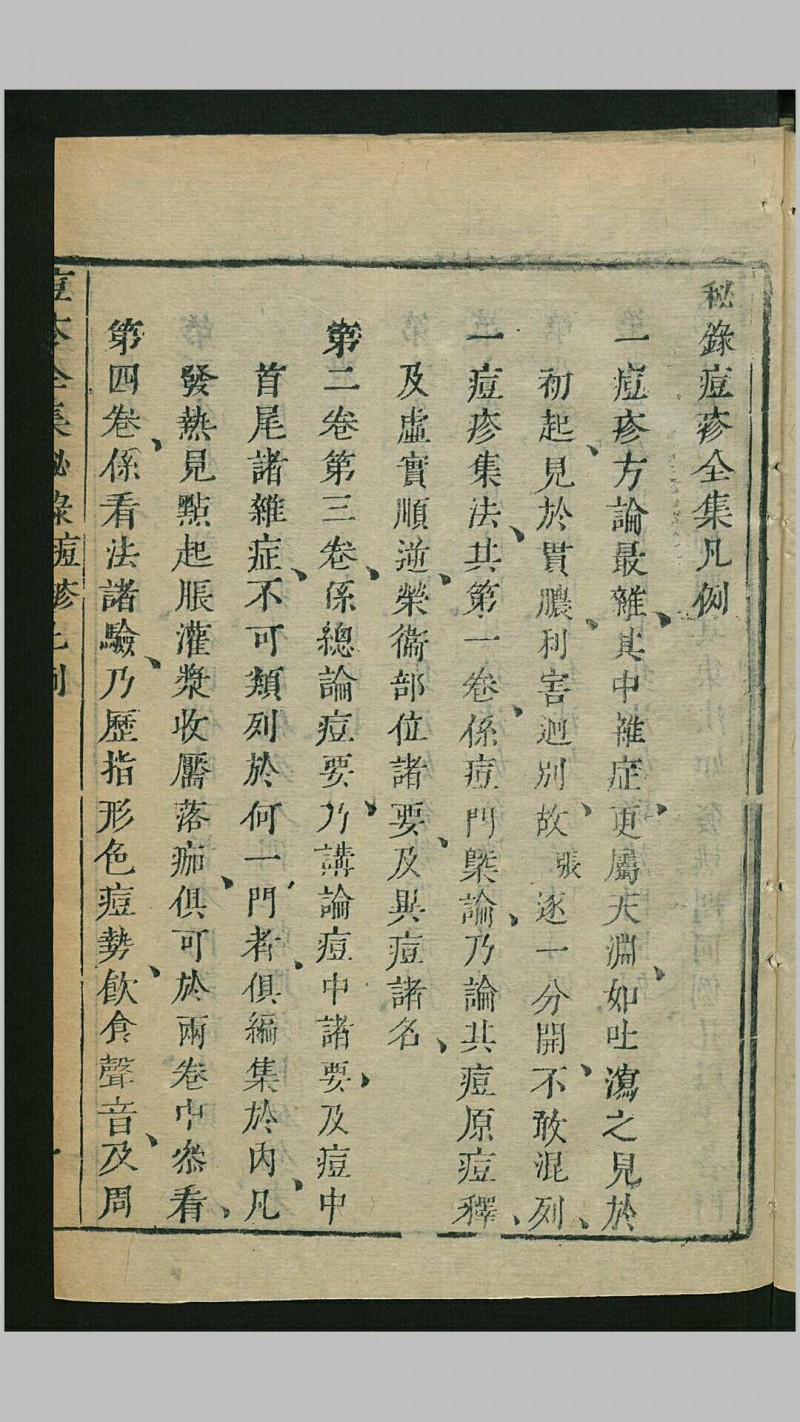 秘錄痘疹全集凡例
一痘疹方論最雜、其中雜症、更屬天淵、如吐瀉之見於
初起、見於貫膿、利害迥別、故張逐一分開、不敢混列、
一痘疹集法、共第一卷、係痘門槩論、乃論其痘原痘釋、
及虛實順逆、榮衞部位諸要、及異痘諸名、
第二卷第三卷、係總論痘要、乃講論痘中諸要、及痘中
首尾諸雜症、不可類列於何一門者、俱編集於內、凡
發熱見點起脹灌漿收靨落痂、俱可於兩卷中叅看、
第四卷、係看法諸驗、乃歷指形色痘勢、飲食聲音、及周
痘疹全集秘錄痘疹凡例